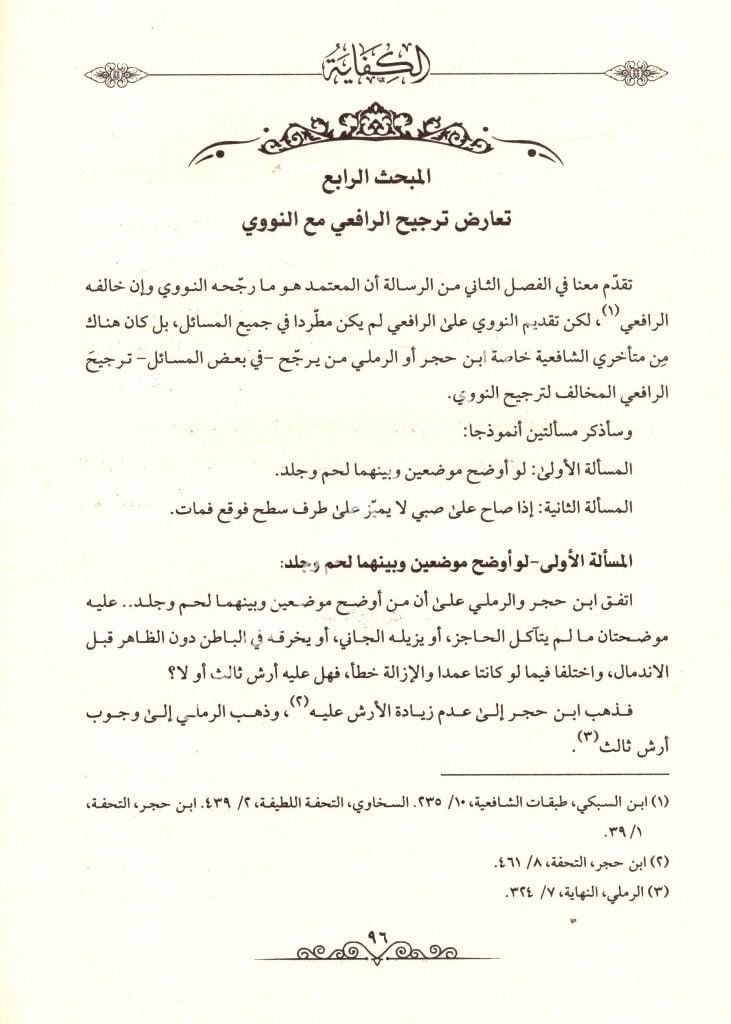 الكِفَايَةُ
المبحث الرابع
تعارض ترجيح الرافعي مع النووي
تقدّم معنا في الفصل الثاني من الرسالة أن المعتمد هو ما رجّحه النووي وإن خالفه
الرافعي(١)، لكن تقديم النووي علىٰ الرافعي لم يكن مطّردا في جميع المسائل، بل كان هناك
مِن متأخري الشافعية خاصة ابن حجر أو الرملي من يرجّح -في بعض المسائل- ترجيحَ
الرافعي المخالف لترجيح النووي.
وسأذكر مسألتين أنموذجا:
المسألة الأولىٰ: لو أوضح موضعين وبينهما لحم وجلد.
المسألة الثانية: إذا صاح علىٰ صبي لا يميّز علىٰ طرف سطح فوقع فمات.
المسألة الأولى-لو أوضح موضعين وبينهما لحم وجلد:
اتفق ابن حجر والرملي علىٰ أن من أوضح موضعين وبينهما لحم وجلد.. عليه
موضحتان ما لم يتآكل الحاجز، أو يزيله الجاني، أو يخرقه في الباطن دون الظاهر قبل
الاندمال، واختلفا فيما لو كانتا عمدا والإزالة خطأ، فهل عليه أرش ثالث أو لا؟
فذهب ابن حجر إلىٰ عدم زيادة الأرش عليه(٢)، وذهب الرملي إلىٰ وجوب
أرش ثالث(٣).
(١) ابن السبكي، طبقات الشافعية، ١٠/ ٢٣٥. السخاوي، التحفة اللطيفة، ٢/ ٤٣٩. ابن حجر، التحفة،
١/ ٣٩.
(٢) ابن حجر، التحفة، ٨/ ٤٦١.
(٣) الرملي، النهاية، ٧/ ٣٢٤.
٩٦